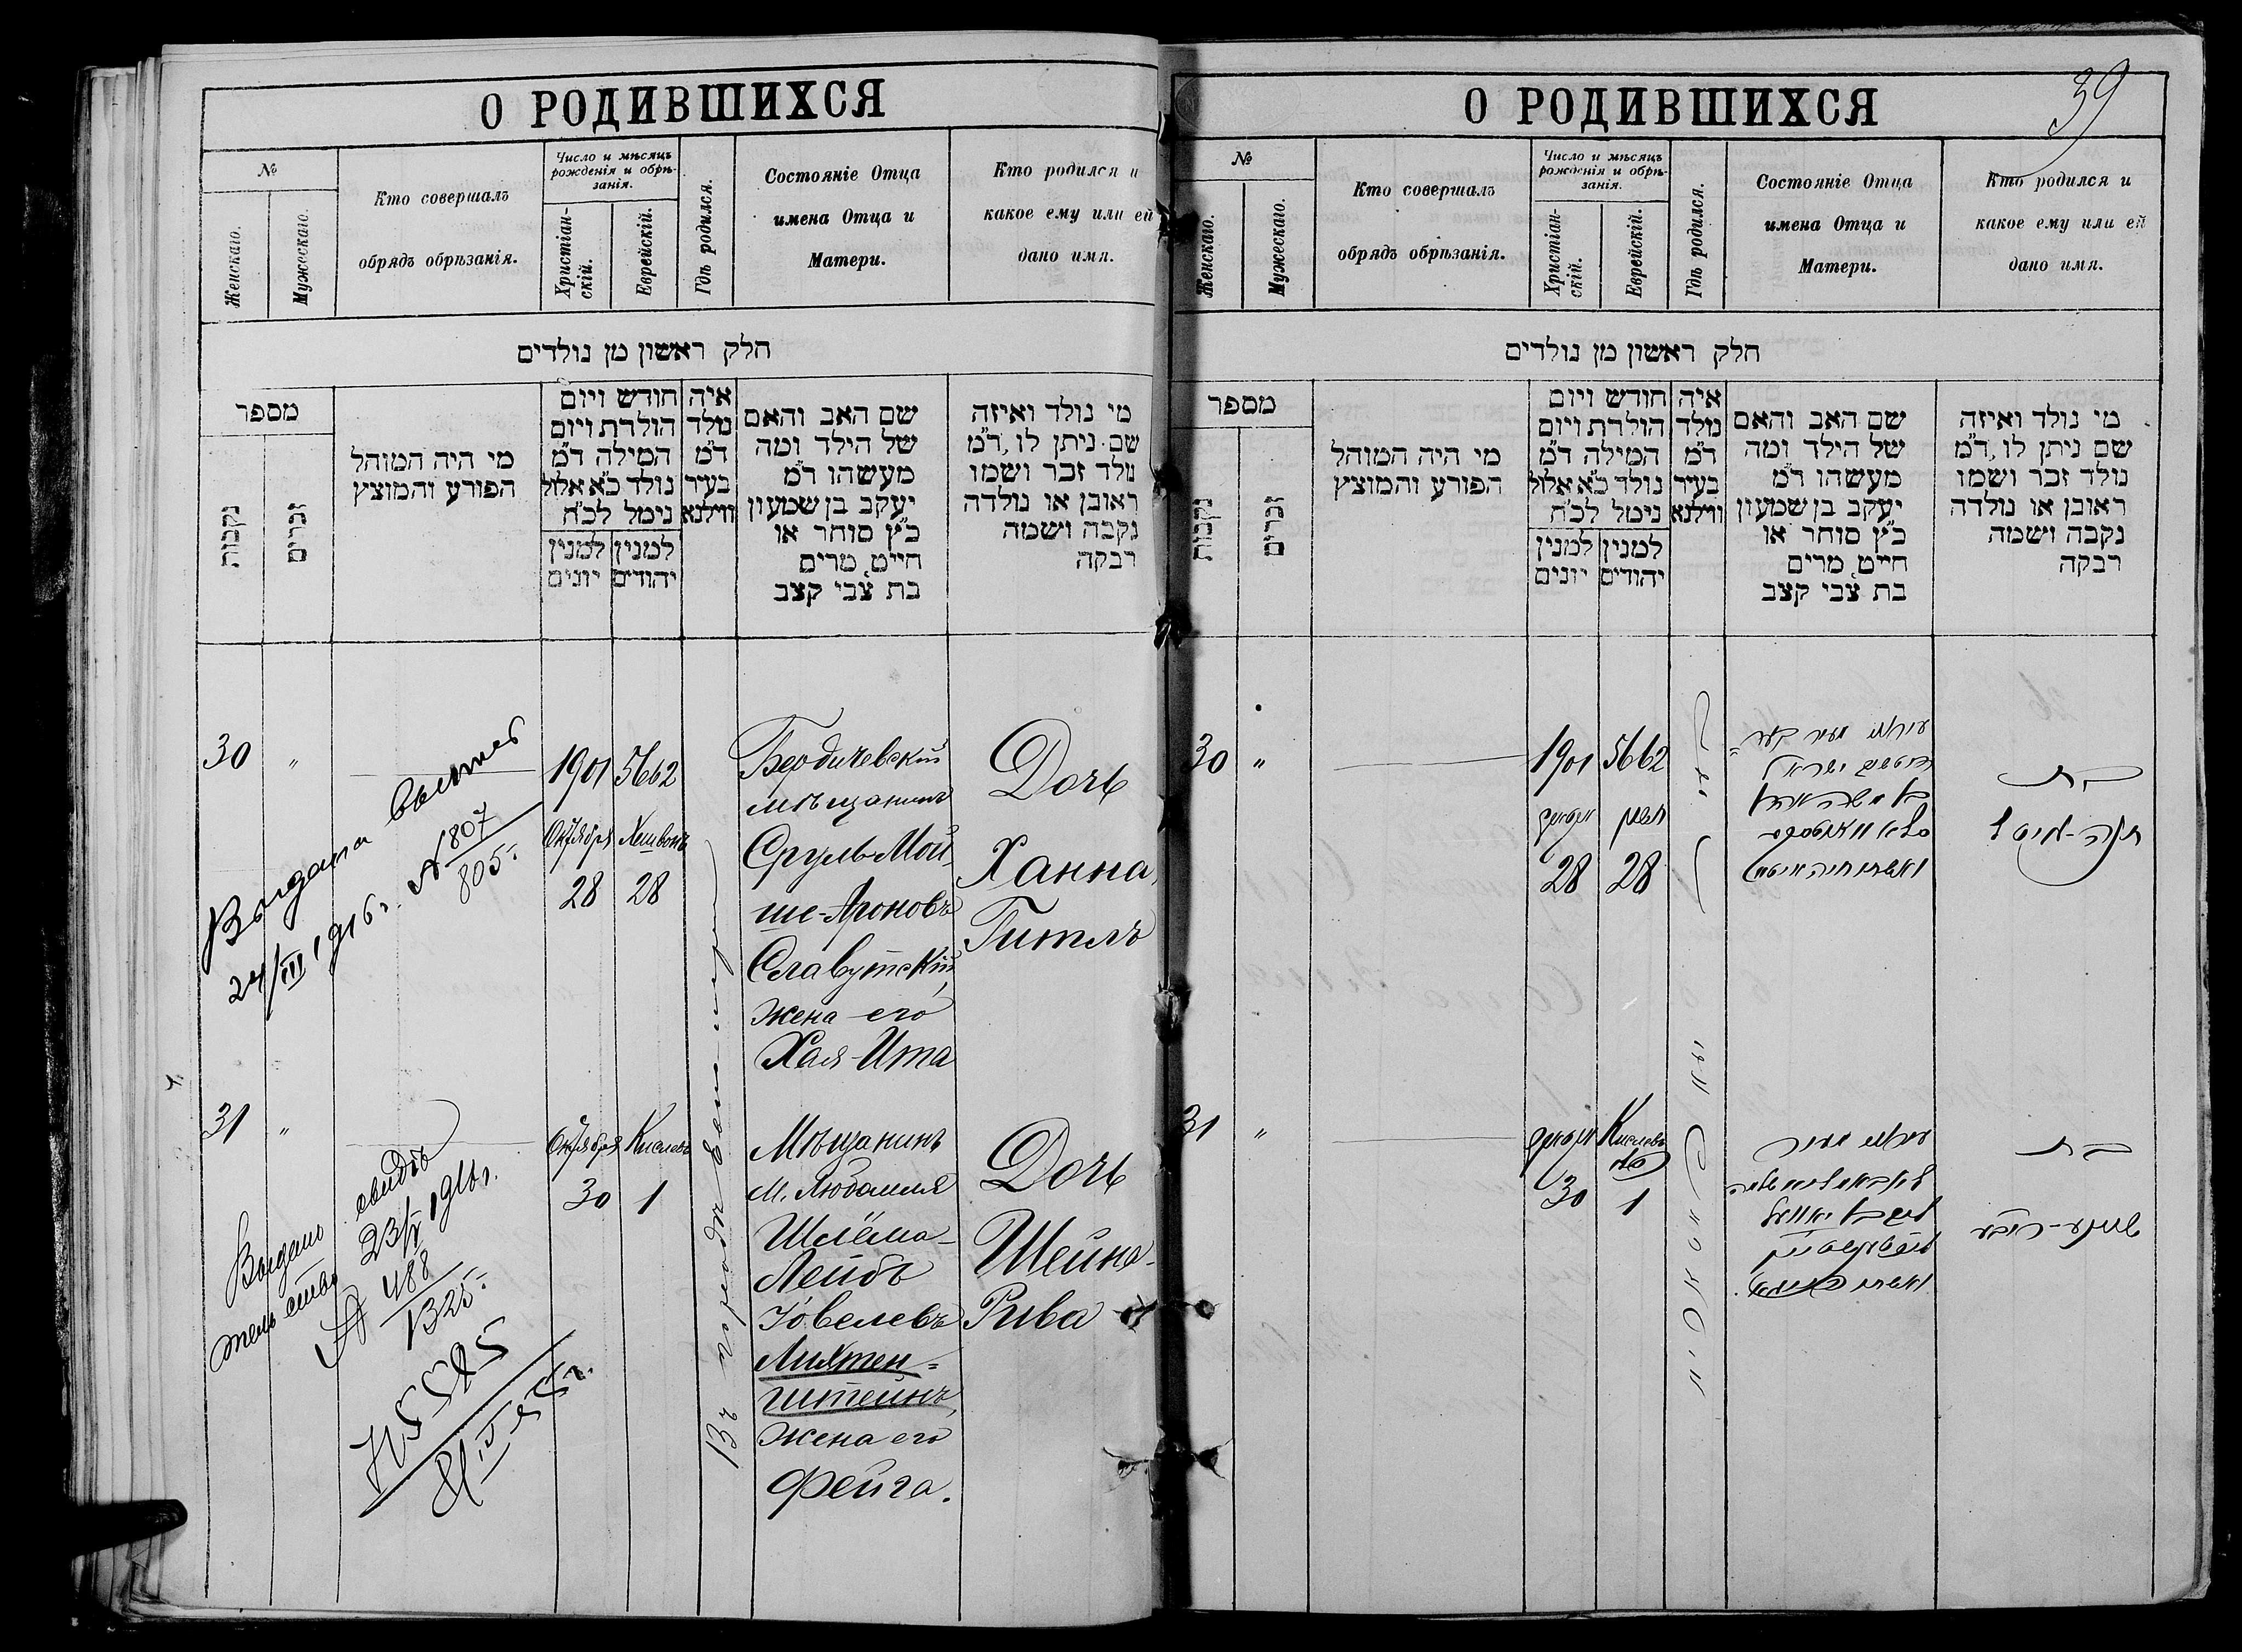 О РОДИВШИХСЯ
№
Женскаго.
Мужескаго.
Кто совершалъ
обрядъ обрѣзанія.
Число и мѣсяцъ
рожденія и обрѣ-
занія.
Христіан-
скій.
Еврейскій.
Гдѣ родился.
Состояніе Отца
имена Отца и
Матери.
Кто родился и
какое ему или ей
дано имя.
חלק ראשון מן נולדים
מספר
נקבות
זכרים
מי היה המוהל
הפורע והמוצץ
חודש ויום
הולדת ויום
המילה ד״מ
נולד כ״א אלול
נימל לכ״ח
למנין
יהודים
למנין
יונים
איה
נולד
ד״מ
בעיר
ווילנא
שם האב והאם
של הילד ומה
מעשהו ד״מ
יעקב בן שמעון
כ״ץ סוחר או
חייט, מרים
בת צבי קצב
מי נולד ואיזה
שם ניתן לו, ד״מ
נולד זכר ושמו
ראובן או נולדה
נקבה ושמה
רבקה
30
"
1901
5662
Октября
Хешвонъ
28
28
Бердичевскій
мѣщанинъ
Сруль-Мой-
ше-Ароновъ
Славутскій,
жена его
Хая-Ита
Дочь
Ханна,
Гитль
Выдана
24/III 1916 г. № 807
805
31
"
Октября
Кислевъ
30
1
Въ городѣ
Мѣщанинъ
м. Любомля
Шлёма-
Лейбъ
Іовелевъ
Лихтен=
штейнъ,
жена его
Фейга.
Дочь
Шейна-
Рива
Выдано свидѣ
тельство 23/V 1916 г.
№ 488
1325
39
О РОДИВШИХСЯ
№
Женскаго.
Мужескаго.
Кто совершалъ
обрядъ обрѣзанія.
Число и мѣсяцъ
рожденія и обрѣ-
занія.
Христіан-
скій.
Еврейскій.
Гдѣ родился.
Состояніе Отца
имена Отца и
Матери.
Кто родился и
какое ему или ей
дано имя.
חלק ראשון מן נולדים
מספר
נקבות
זכרים
מי היה המוהל
הפורע והמוצץ
חודש ויום
הולדת ויום
המילה ד״מ
נולד כ״א אלול
נימל לכ״ח
למנין
יהודים
למנין
יונים
איה
נולד
ד״מ
בעיר
ווילנא
שם האב והאם
של הילד ומה
מעשהו ד״מ
יעקב בן שמעון
כ״ץ סוחר או
חייט, מרים
בת צבי קצב
מי נולד ואיזה
שם ניתן לו, ד״מ
נולד זכר ושמו
ראובן או נולדה
נקבה ושמה
רבקה
30
"
1901
5662
אקטאבר
חשון
28
28
ישראל
בן משה אהרן
ואשתו חיה איטא
בת
חנה-גיטל
31
"
אקטאבר
Кислевъ
30
1
ואשתו פייגא
בת
שיינע-ריבע